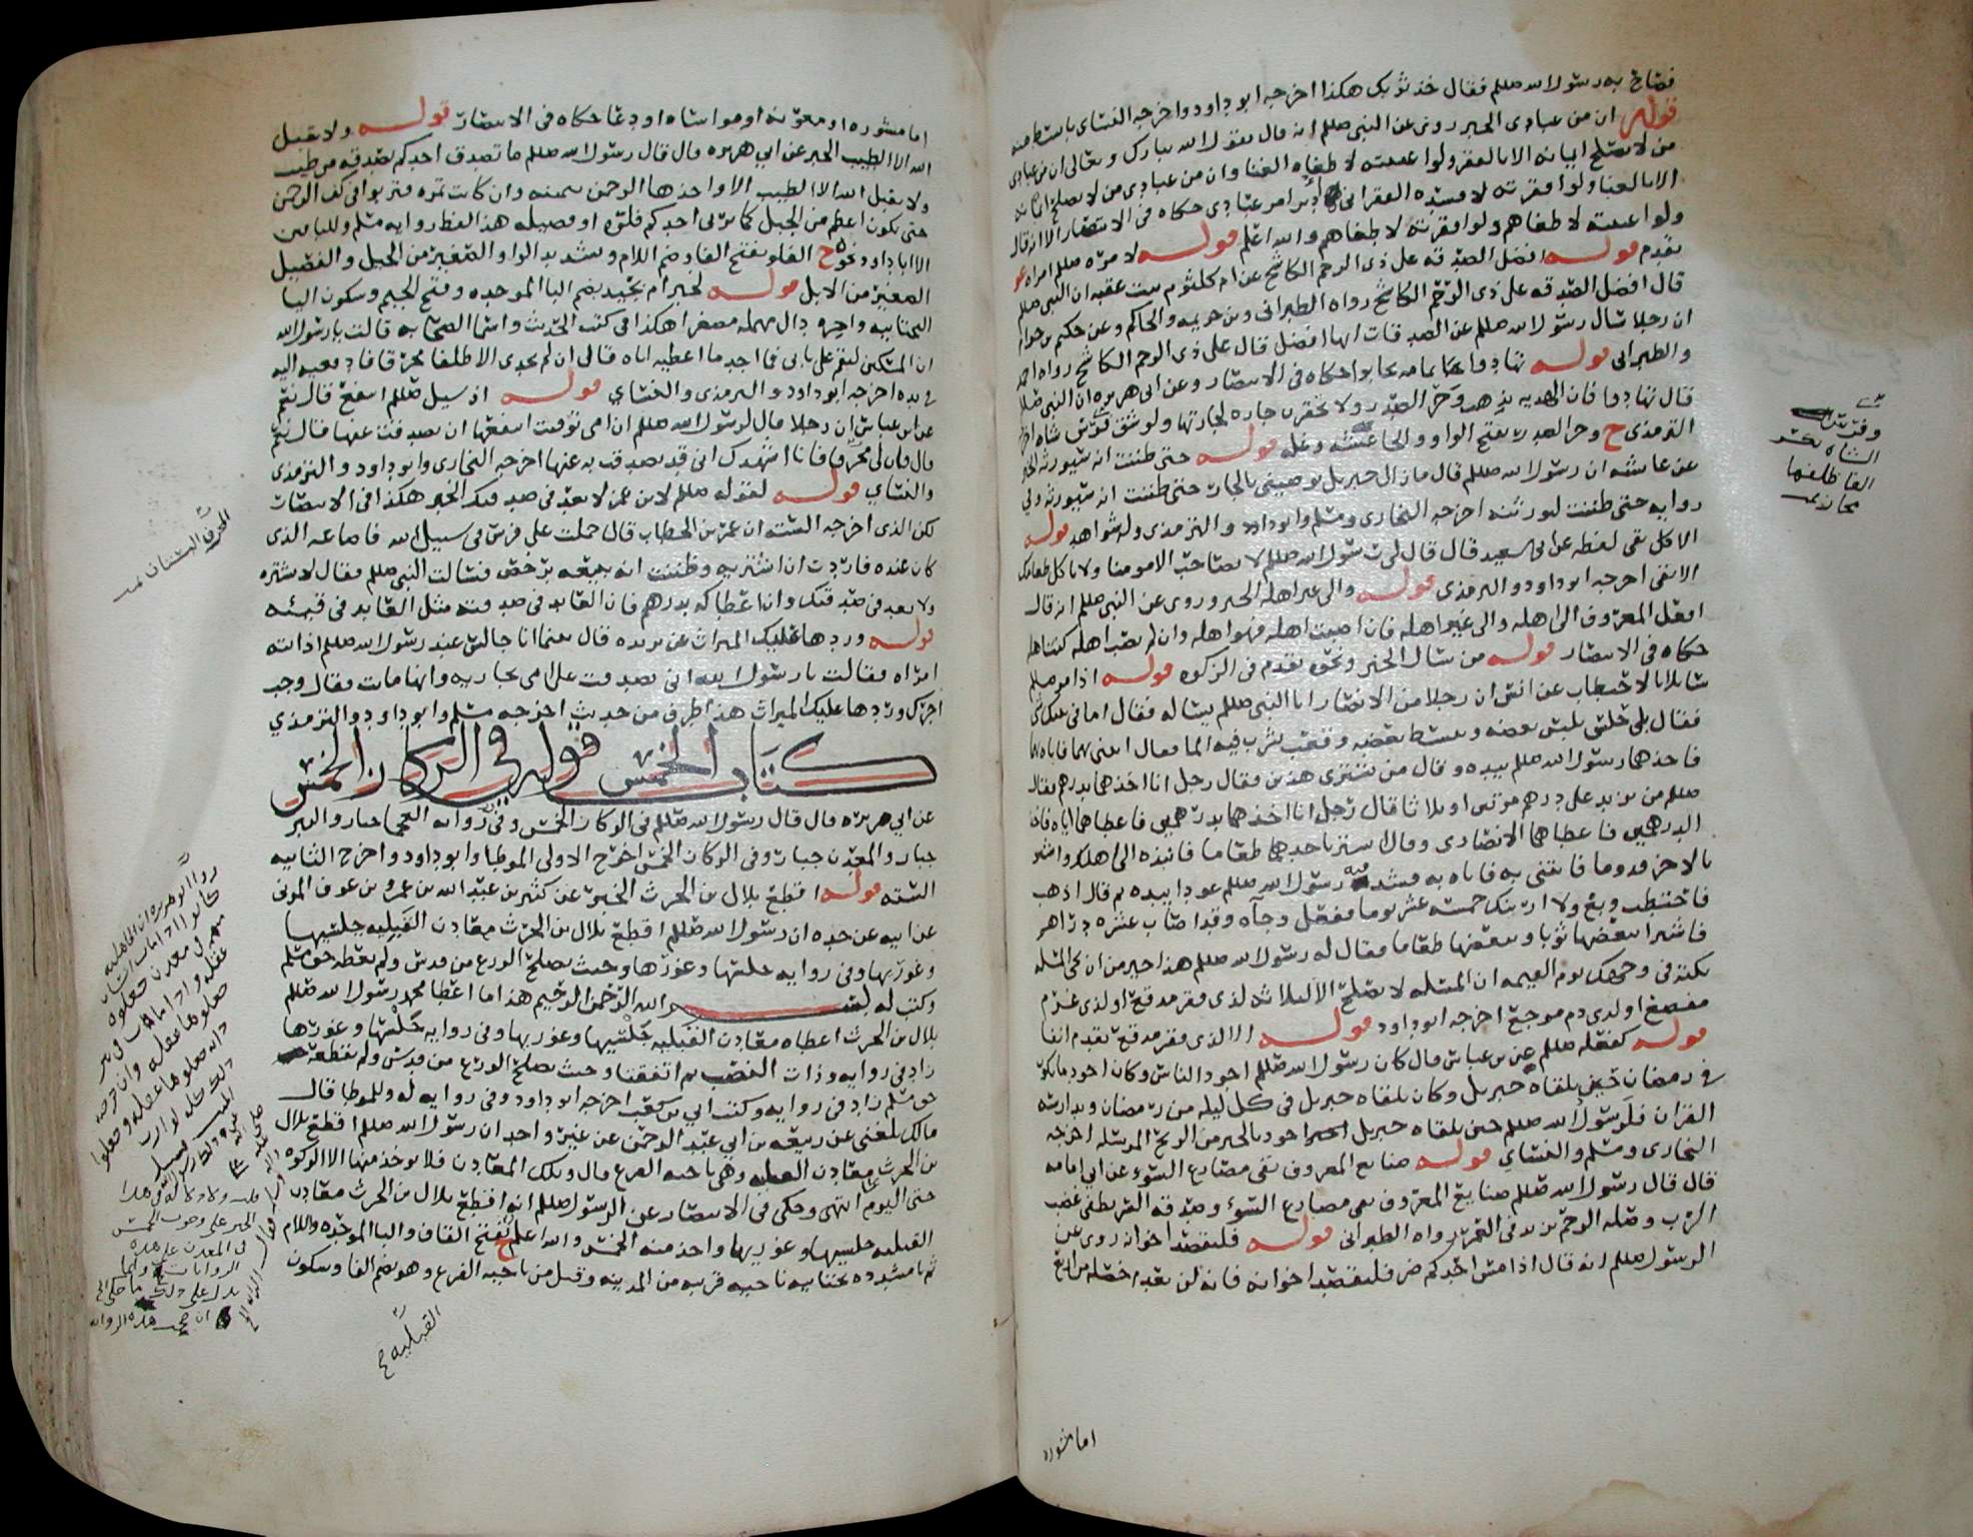 فصاح به رسول الله صللم فقال خذ ثوبك هكذا اخرجه ابو داود واخرجه النسائي بابسط منه
قوله ان من عبادى الخبر روى عن النبي صللم انه قال يقول الله تبارك وتعالى ان من عبادي
من لا يصلح ايمانه الا بالفقر ولو اغنيته لاطغاه الغنا وان من عبادى من لا يصلح ايمانه
الا بالغنا ولو افقرته لافسده الفقر اني ادبر امر عبادى حكاه في الانتصار الا انه قال
ولو اغنيته لاطغاهم ولو افقرته لاطغاهم والله اعلم قوله لامره صللم امراه
تقدم قوله افضل الصدقه على ذى الرحم الكاشح عن ام كلثوم بنت عقبه ان النبي صللم
قال افضل الصدقه على ذى الرحم الكاشح رواه الطبراني وبن خزيمه والحاكم وعن حكيم بن حزام
ان رجلا سال رسول الله صللم عن الصدقات ايها افضل قال على ذى الرحم الكاشح رواه احمد
والطبرانى قوله تهادوا تحابوا حكاه في الانتصار وعن ابى هريره ان النبى صللم
قال تهادوا فان الهديه تذهب وحر الصدر ولا تحقرن جاره لجارتها ولو شق فرسن شاه اخرجه
الترمذى ح وحر الصدر بفتح الواو والحا غشه وغله قوله حتى ظننت انه سيورثه الخبر
عن عائشه ان رسول الله صللم قال ما زال جبريل يوصينى بالجار حتى ظننت انه سيورثه وفي
روايه حتى ظننت ليورثنه اخرجه البخارى ومسلم وابو داود والترمذى وله شواهد قوله
الا كل تقى لفظه عن ابى سعيد قال قال لى رسول الله صللم لا تصاحب الا مومنا ولا ياكل طعامك
الا تقى اخرجه ابو داود والترمذى قوله والى غير اهله الخبر وروى عن النبي صللم انه قال
افعل المعروف الى اهله والى غير اهله فان اصبت اهله فهو اهله وان لم تصب اهله كنت اهله
حكاه فى الانتصار قوله من سال الخبر ونحوه تقدم فى الزكوه قوله اذا امر صللم
سائلا بالاحتطاب عن انس ان رجلا من الانصار اتا النبي صللم يساله فقال اما فى بيتك شى
فقال بلى حلس نلبس بعضه ونبسط بعضه وقعب نشرب فيه الما فقال ائتنى بهما فاتاه بهما
فاخذهما رسول الله صللم بيده وقال من يشترى هذين فقال رجل انا اخذهما بدرهم فقال
صللم من يزيد على درهم مرتين او ثلاثا قال رجل انا اخذهما بدرهمين فاعطاهما اياه فاخذ
الدرهمين فاعطاهما الانصارى وقال اشتر باحدهما طعاما فانبذه الى اهلك واشتر
بالاخر قدوما فائتنى به فاتاه به فشد فيه رسول الله صللم عودا بيده ثم قال اذهب
فاحتطب وبع ولا ارينك خمسه عشر يوما ففعل وجآه وقد اصاب عشره دراهم
فاشترا ببعضها ثوبا وببعضها طعاما فقال له رسول الله صللم هذا خير من ان تجى المسله
نكته فى وجهك يوم القيمه ان المسله لا تصلح الا لثلاثه لذى فقر مدقع او لذى غرم
مفضع او لذى دم موجع اخرجه ابو داود قوله الا لذى فقر مدقع تقدم انفا
قوله كفعله صللم عن بن عباس قال كان رسول الله صللم اجود الناس وكان اجود ما يكون
في رمضان حين يلقاه جبريل وكان يلقاه جبريل فى كل ليله من رمضان فيدارسه
القران فلرسول الله صللم حين يلقاه جبريل اجود بالخير من الريح المرسله اخرجه
البخارى ومسلم والنسائي قوله صنايع المعروف تقى مصارع السؤ عن ابي امامه
قال قال رسول الله صللم صنايع المعروف تقى مصارع السوء وصدقه السر تطفى غضب
الرب وصله الرحم تزيد فى العمر رواه الطبرانى قوله فليقصد اخوانه روى عن
الرسول صللم انه قال اذا مس احدكم ضر فليقصد اخوانه فانه لن يعدم خصله من اربع
وفرسن
الشاه
القا ظلفها
اما مشوره
اما مشوره او معونه او مواساه او دعا حكاه فى الانتصار قوله ولا يقبل
الله الا الطيب الخبر عن ابي هريره قال قال رسول الله صللم ما تصدق احدكم بصدقه من طيب
ولا يقبل الله الا الطيب الا واخذها الرحمن بيمينه وان كانت تمره فتربوا فى كف الرحمن
حتى تكون اعظم من الجبل كما يربى احدكم فلوه او فصيله هذا لفظ روايه مسلم وللباقين
الا ابا داود نحوه ح الفلو بفتح الفا وضم اللام وتشديد الواو الصغير من الخيل والفصيل
الصغير من الابل قوله لخبر ام بجيد بضم البا الموحده وفتح الجيم وسكون اليا
التحتانيه واخره دال مهمله مصغرا هكذا فى كتب الحديث واسما الصحابه قالت يا رسول الله
ان المسكين ليقوم على بابى فما اجد ما اعطيه اياه قال ان لم تجدى الا ظلفا محرقا فادفعيه اليه
فى يده اخرجه ابو داود والترمذى والنسائي قوله اذ سيل صللم اينفع قال نعم
عن ابن عباس ان رجلا قال لرسول الله صللم ان امى توفيت اينفعها ان تصدقت عنها قال نعم
قال فان لى مخرفا فانا اشهدك انى قد تصدقت به عنها اخرجه البخارى وابو داود والترمذى
والنسائي قوله لقوله صللم لابن عمر لا تعد فى صدقتك الخبر هكذا فى الانتصار
لكن الذى اخرجه السته ان عمر بن الخطاب قال حملت على فرس فى سبيل الله فاضاعه الذى
كان عنده فاردت ان اشتريه وظننت انه يبيعه برخص فسالت النبى صللم فقال لا تشتره
ولا تعد فى صدقتك وان اعطاكه بدرهم فان العايد فى صدقته مثل العايد فى قيئه
قوله وردها عليك الميراث عن بريده قال بينما انا جالس عند رسول الله صللم اذ اتته
امراه فقالت يا رسول الله انى تصدقت على امى بجاريه وانها ماتت فقال وجب
اجرك وردها عليك الميراث هذا طرف من حديث اخرجه مسلم وابو داود والترمذي
كتاب الخمس قوله فى الركاز الخمس
عن ابي هريره قال قال رسول الله صللم فى الركاز الخمس وفى روايه العجما جبار والبير
جبار والمعدن جبار وفى الركاز الخمس اخرج الاولى الموطا وابو داود واخرج الثانيه
السته قوله اقطع بلال بن الحرث الخبر عن كثير بن عبد الله بن عمرو بن عوف المزنى
عن ابيه عن جده ان رسول الله صللم اقطع بلال بن الحرث معادن القبليه جلسيها
وغوريها وفى روايه جلسها وغورها وحيث يصلح الزرع من قدس ولم يعطه حق مسلم
وكتب له بسم الله الرحمن الرحيم هذا ما اعطا محمد رسول الله صللم
بلال بن الحرث اعطاه معادن القبليه جلسيها وغوريها وفى روايه جلسها وغورها
زاد في روايه وذات النصب ثم اتفقنا وحيث يصلح الزرع من قدس ولم يقطعه
حق مسلم زاد فى روايه وكتب ابى بن كعب اخرجه ابو داود وفى روايه له وللموطا قال
مالك بلغنى عن ربيعه بن ابي عبد الرحمن عن غير واحد ان رسول الله صللم اقطع بلال
بن الحرث معادن القبليه وهى ناحيه الفرع قال وتلك المعادن فلا يوخذ منها الا الزكوه
حتى اليوم انتهى وحكى فى الانتصار عن الرسول صللم انه اقطع بلال بن الحرث معادن
القبليه جلسيها وغوريها واخذ منه الخمس والله اعلم ح بفتح القاف والبا الموحده واللام
ثم يا مشدده تحتانيه ناحيه قريبه من المدينه وقيل من ناحيه الفرع وهو بضم الفا وسكون
القبليه ح
المخرف البستان